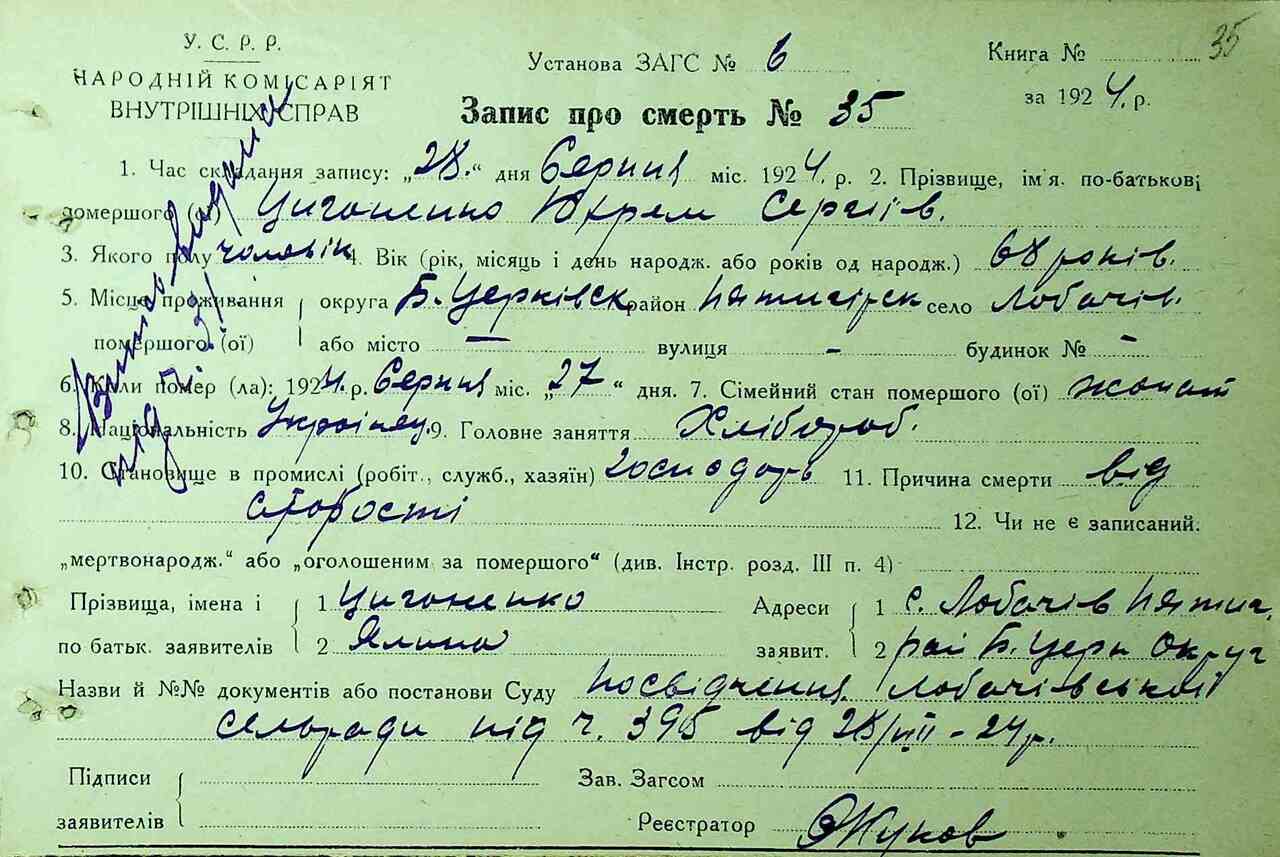 35
У. С. Р. Р.
НАРОДНІЙ КОМІСАРІЯТ
ВНУТРІШНІХ СПРАВ
Установа ЗАГС № 6
Книга №
за 1924. р.
Запис про смерть № 35
1. Час складання запису: „28.“ дня Серпня міс. 1924. р. 2. Прізвище, ім'я. по-батькові
помершого (ої) Цигоненко Юхрем Сергіїв.
3. Якого полу чоловік 4. Вік (рік, місяць і день народж. або років од народж.) 68 років.
5. Місце проживання округа Б. Церківськ район Пятигірск село Лобачів.
помершого (ої) або місто — вулиця - будинок № -
6. Коли помер (ла): 1924. р. Серпня міс. „27“ дня. 7. Сімейний стан помершого (ої) жонат
8. Національність Українец. 9. Головне заняття Хлібороб.
10. Становище в промислі (робіт., служб., хазяїн) господарь 11. Причина смерти від
старости 12. Чи не є записаний:
„мертвонародж.“ або „оголошеним за помершого“ (див. Інстр. розд. III п. 4)
Прізвища, імена і 1 Цигоненко Адреси 1 с. Лобачів Пятиг.
по батьк. заявителів 2 Ялина заявит. 2 рай Б. Церк Округ
Назви й №№ документів або постанови Суду Посвідчення Лобачівської
сельради під ч. 395 від 28/VIII - 24 р.
Підписи
заявителів
Зав. Загсом
Реєстратор Жуков